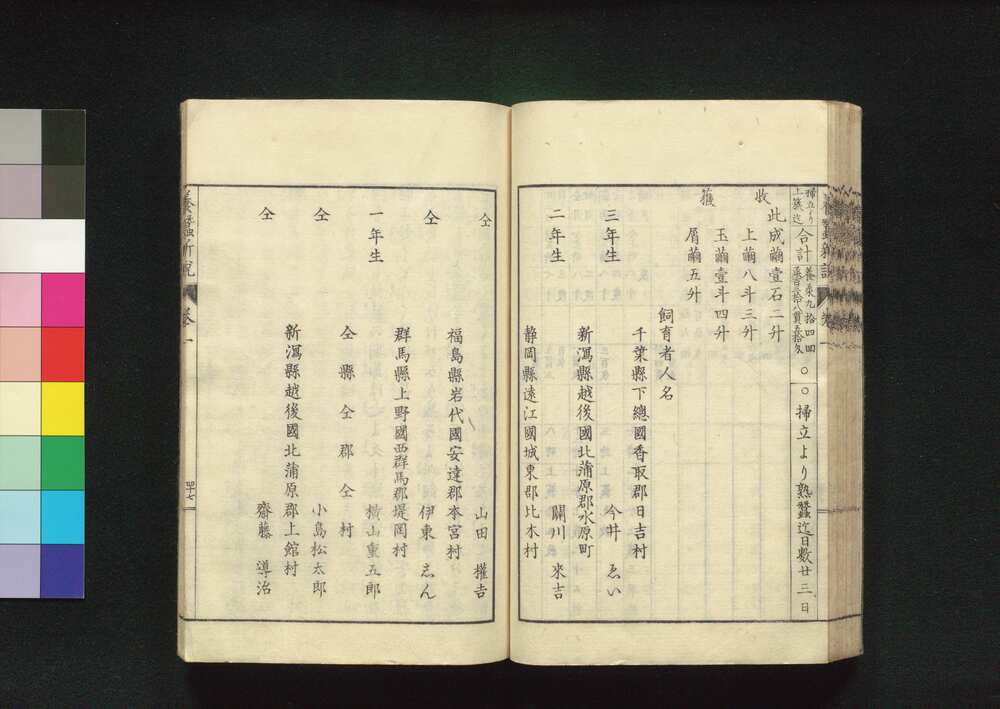 掃立より上簇迄 合計 ○○掃立より熟蚕迄日數廿三日
此成繭壹石二升
収
上繭八斗三升
玉繭壹斗四升
屑繭五升
飼育者人名
千葉縣下總國香取郡日吉村
三年生 今井 ゑい
新潟縣越後國北蒲原郡水原町
二年生 關川 來吉
静岡縣遠江國城東郡比木村
仝 山田 權吉
福島縣岩代國安達郡本宮村
仝 伊東 志ん
群馬縣上野國西群馬郡堤岡村
一年生 横山重五郎
仝縣仝郡仝村
仝 小島松太郎
新潟縣越後國北蒲原郡上館村
仝 齋藤 導治
四十七